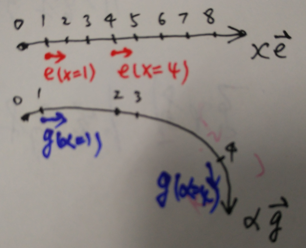 0 1 2 3 4 5 6 7 8
x e⃗
e(x=1) e(x=4)
0 1 2 3 4
g(α=1) g(α=4)
α g⃗